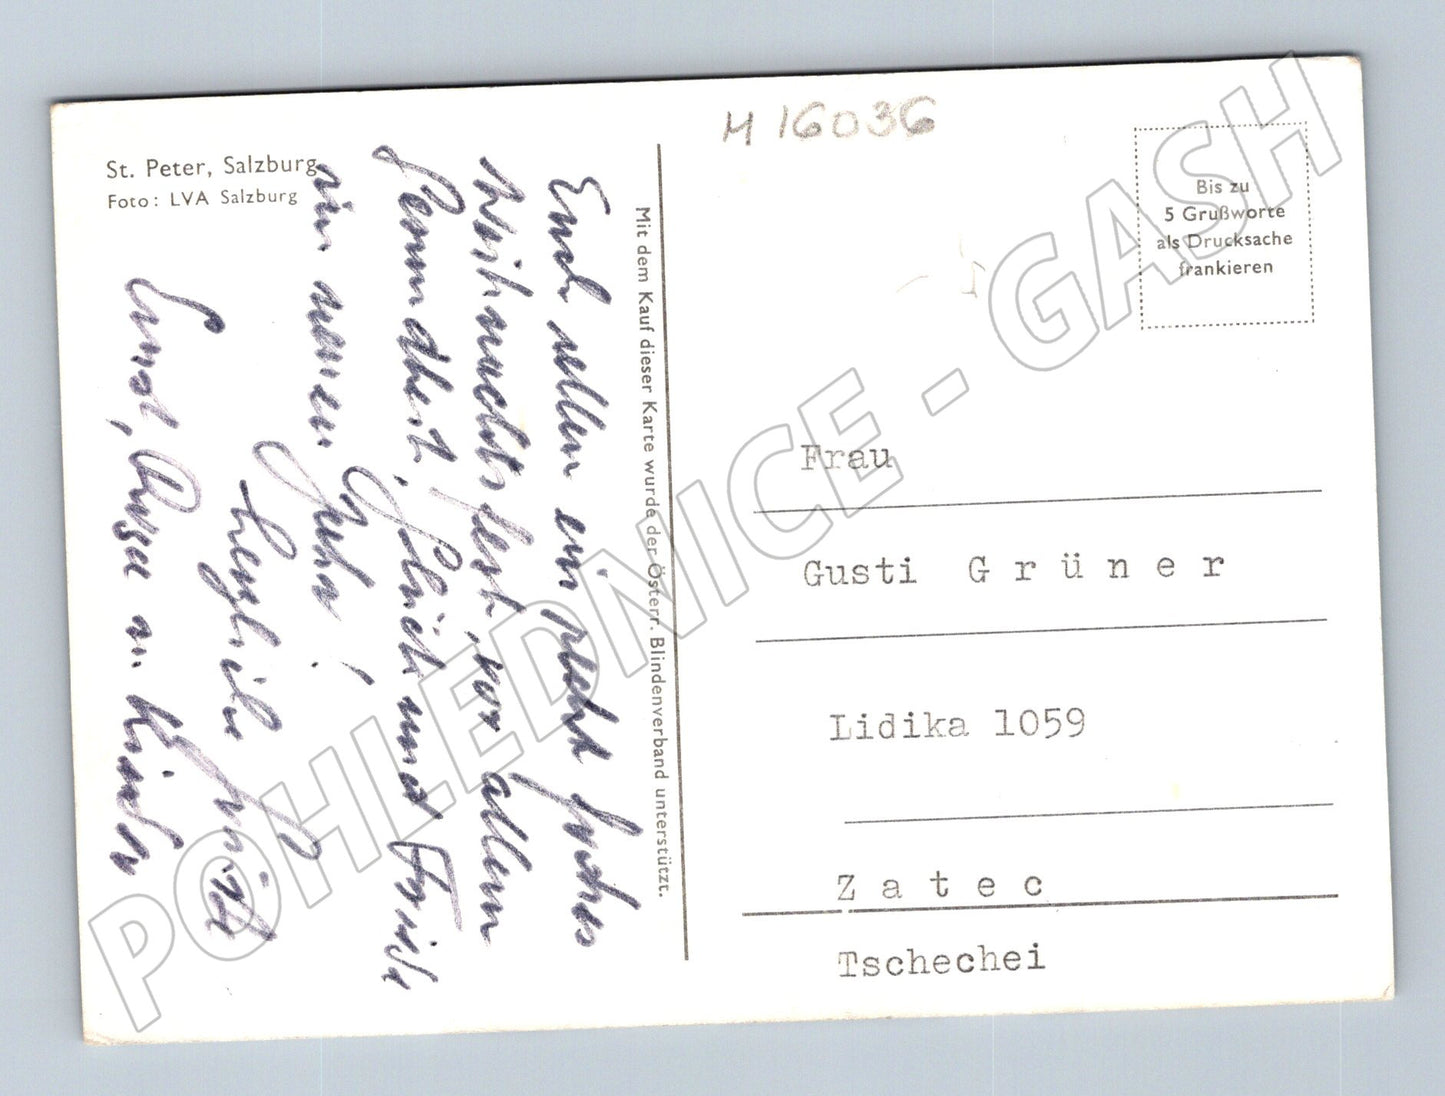 St. Peter, Salzburg
Foto: LVA Salzburg
Euch allen ein recht frohes
Weihnachtsfest, vor allem
Gesundheit, Glück und Friede
im neuen Jahr!
Herzliche Grüße
Ernst, u. Kinder
Mit dem Kauf dieser Karte wurde der Österr. Blindenverband unterstützt.
M 16036
Bis zu
5 Grußworte
als Drucksache
frankieren
Frau
Gusti Grüner
Lidika 1059
Zatec
Tschechei
POHLEDNICE - GASH